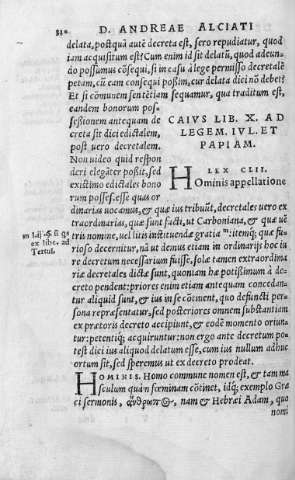 82 D. ANDREAE ALCIATI
delata, postquā autē decreta est, sero repudiatur, quod
iam acquisitum est? Cum enim id sit delatū, quod adeun-
do possumus cōsequi, si in casu à lege permisso decretalē
petam, eā́ eam consequi possim, cur delata dici nō debet?
Et si cōmunem sentētiam sequamur, quæ traditum est,
eandem bonorum pos-
sessionem antequam de
creta sit dici edictalem,
post verò decretalem.
Non video quid respon
deri eleganter possit, sed
existimo edictales bono
rum posses. esse quas or
CAIVS LIB. X. AD
LEGEM. IVL. ET
PAPIAM.
LEX CLII.
HOminis appellatione
dinarias vocamus, & quæ ius tribuūt, decretales vero ex
traordinarias, quæ sunt facti, ut Carboniana, & quæ vē
tris nomine, vel litis instituendæ gratia: itemq́; quæ fu-
rioso decernitur, nā ut demus etiam in ordinarijs hoc iu
re decretum necessarium fuisse, solæ tamen extraordina
riæ decretales dictæ sunt, quoniam hæ potissimùm à de-
creto pendent: priores enim etiam antequam conceдan-
tur aliquid sunt, & ius in se cōtinent, quo defuncti per-
sona repræsentatur, sed posteriores omnem substantiam
ex prætoris decreto accipiunt, & eodē momento oriun-
tur: petentiq́; acquiruntur: non ergo ante decretum po-
test dici ius aliquod delatum esse, cum ius nullum adhuc
ortum sit, sed speremus ut ex decreto prodeat.
HOMINIS. Homo commune nomen est, & tam ma
sculum quàm fœminam cōtinet, idq́; exemplo Græ
ci sermonis, ἄνθρωπος, nam & Hebræi Adam, quo
nomi
ex libe. ad
Tertul.